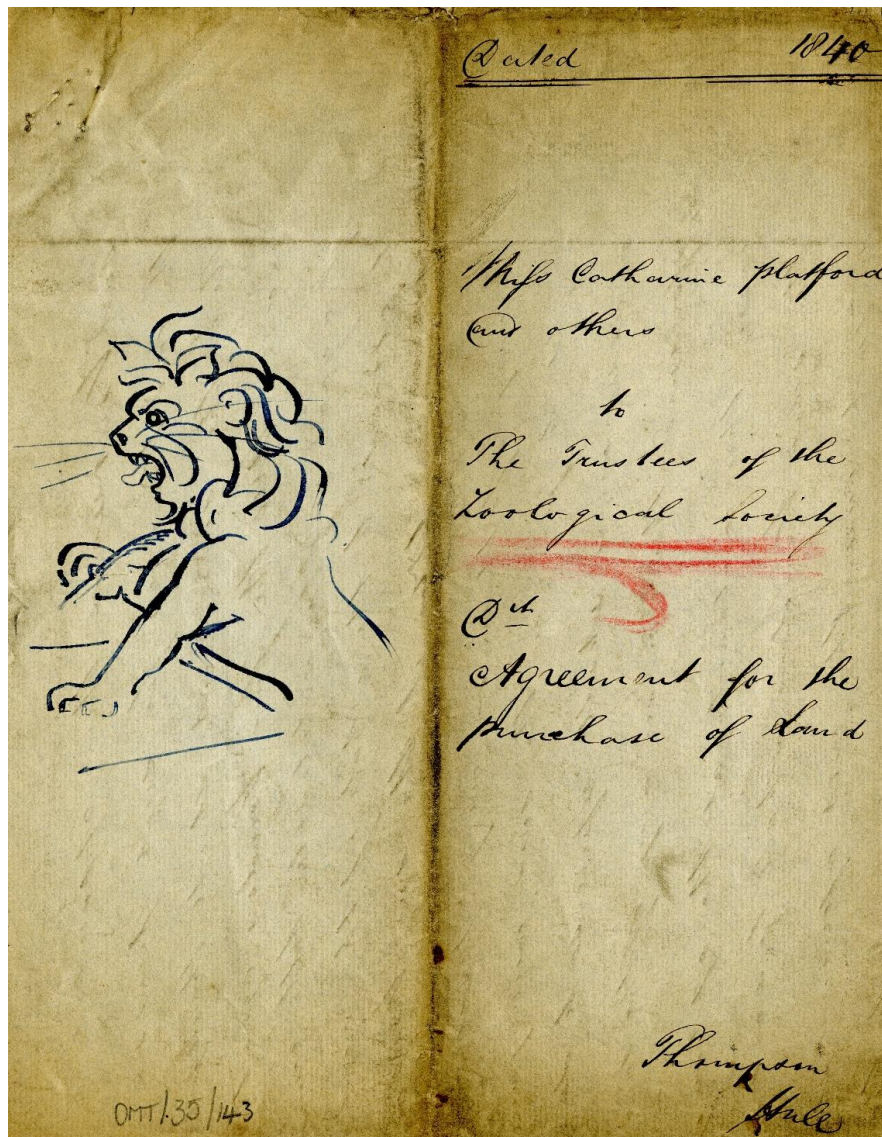 Dated 1840
Miss Catharine Platford
and others
to
The Trustees of the
Zoological Society
Dft
Agreement for the
purchase of Land
Thompson
Hull
OMT/.35/143